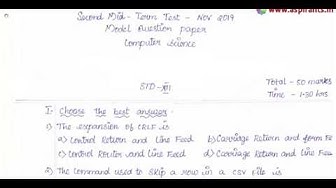 www.aspirants.in
Second Mid-Term Test - Nov 2019
Model Question paper
Computer Science
STD-XII
Total - 50 marks
Time - 1.30 hrs
I. Choose the best answer.
1) The expansion of CRLF is
a) Control Return and Line Feed b) Carriage Return and form Fe
c) Control Router and Line Feed d) Carriage Return and Line F
2) The command used to skip a row in a CSV file is